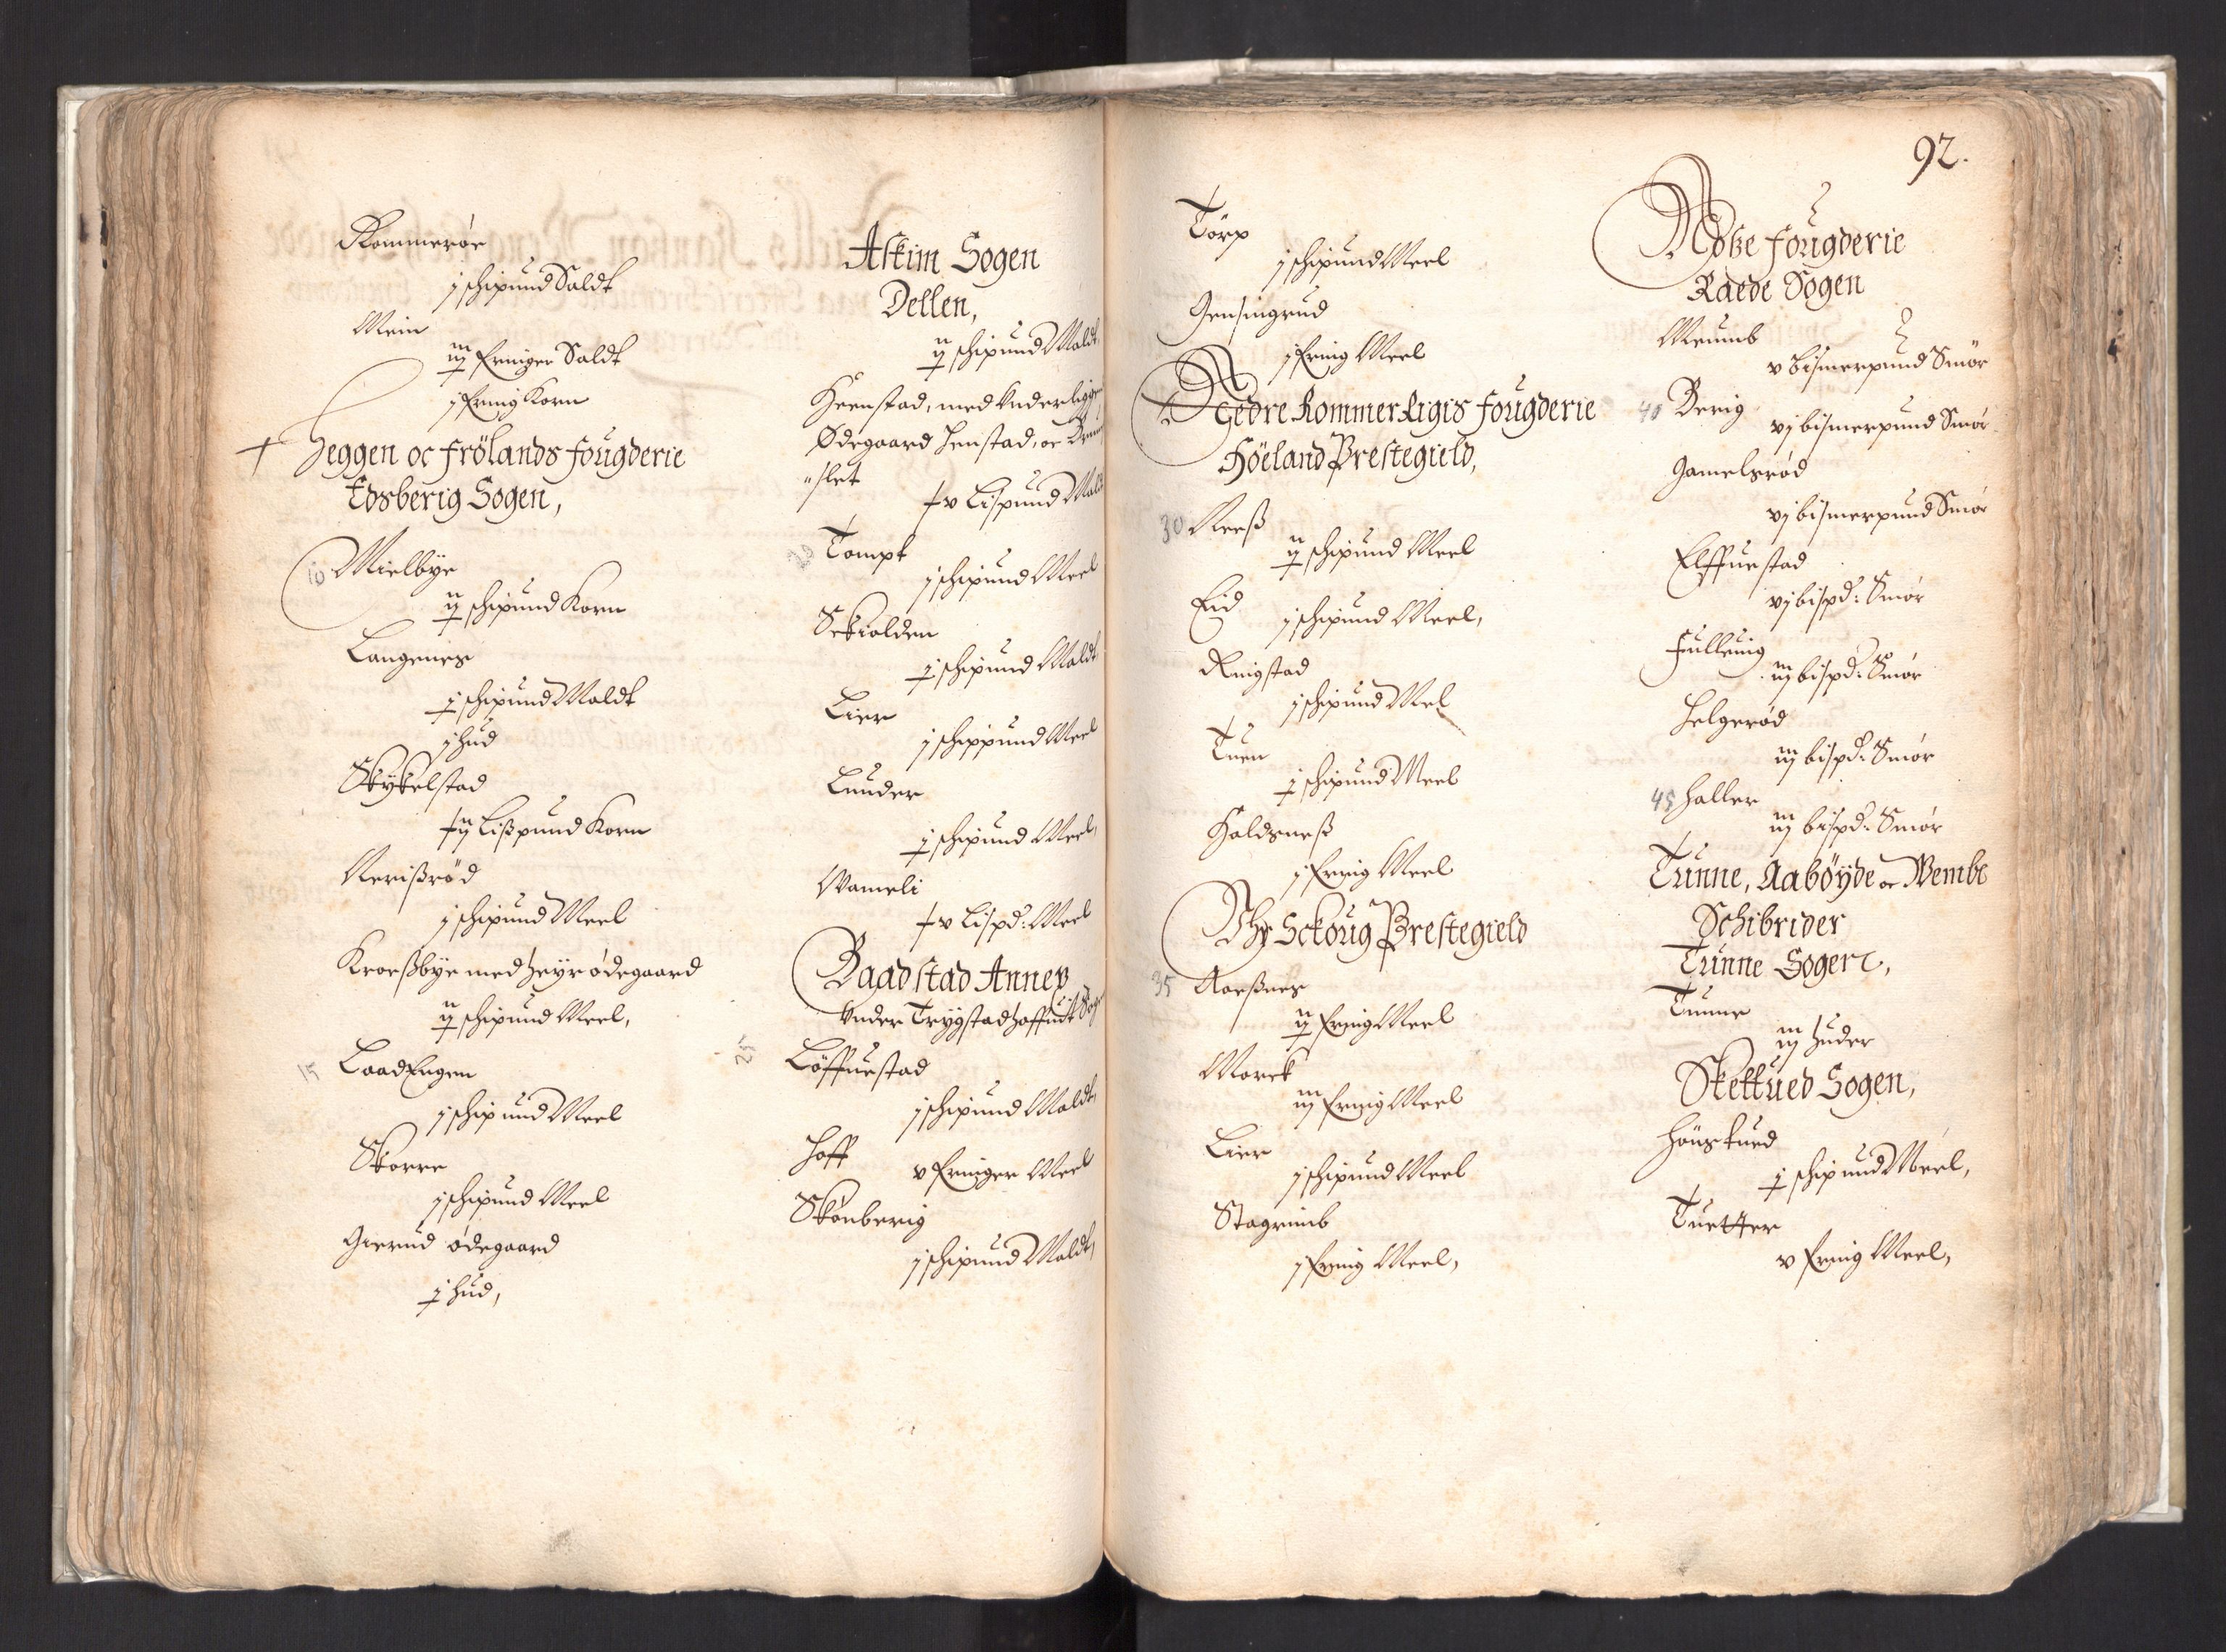 Rommerøe
j schipund Saldt
Mein
iij fringer Saldt
j fring Korn
Heggen oc frölands fougderie
Edsberig Sogen,
10 Mielbye
ij schipund Korn
Langenes
j schipund Maldt
j hud
Skÿkelstad
ij Lißpund Korn
Nerißrød
j schipund Meel
Kroeßbye med Heyr ødegaard
ij schipund Meel,
15 LaadEngen
j schipund Meel
Skorre
j schipund Meel
Gierud ødegaard
j hud,
Askim Sogen
Dellen,
ij schipund Maldt
Heenstad, med Vnderligge
Ødegaard Henstad, oc
slet
v Lispund Mald
20 Tompt
j schipund Meel
Sckiolden
j schipund Maldt
Lier
j schippund Meel
Lunder
j schipund Meel,
Wameli
v Lispd: Meel
Baadstad Annex
Vnder Trygstad Hoffuit Sog
25 Löffuestad
j schipund Maldt,
Hoff
v fringer Meel
Skönberig
j schipund Maldt,
92.
Törp
j schipund Meel
Gensingrud
j fring Meel
Nedre Rommerigis fougderie
Höeland Prestegield,
30 Neeß
ij schipund Meel
Eid
j schipund Meel,
Ringstad
j schipund Mel
Tuen
j schipund Meel
Haldsneß
j fring Meel
Vhr Sckoug Prestegield
35 Aarßnes
ij fring Meel
Morck
iij fring Meel
Lier
j schipund Meel
Stagrimb
j fring Meel,
Moße fougderie
Raede Sogen
Meumb
v bismerpund Smör
40 Berig
vj bismerpund Smör
Gamelsrød
vj bismerpund Smör
Elffuestad
vj bispd: Smör
Fulleuig
iij bispd: Smör
Helgerød
iij bispd: Smör
45 Haller
iij bispd: Smör
Tunne, Aabøyde oc Wembe
Schibrider
Tunne Sogen,
Tunne
iij huder
Skettued Sogen,
Hönstued
j schipund Meel,
Tuetter
v fring Meel,